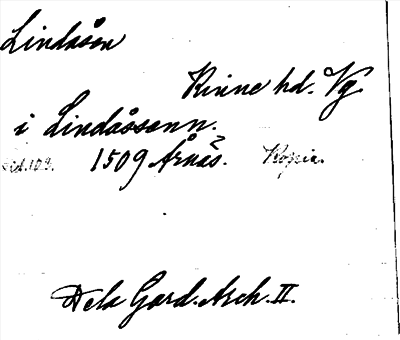 Lindåsen
Kinne hd. Vg
i Lindåssenn.
sid. 103. 1509 Årnäs. Kopia.
Dela Gard. Arch. II.